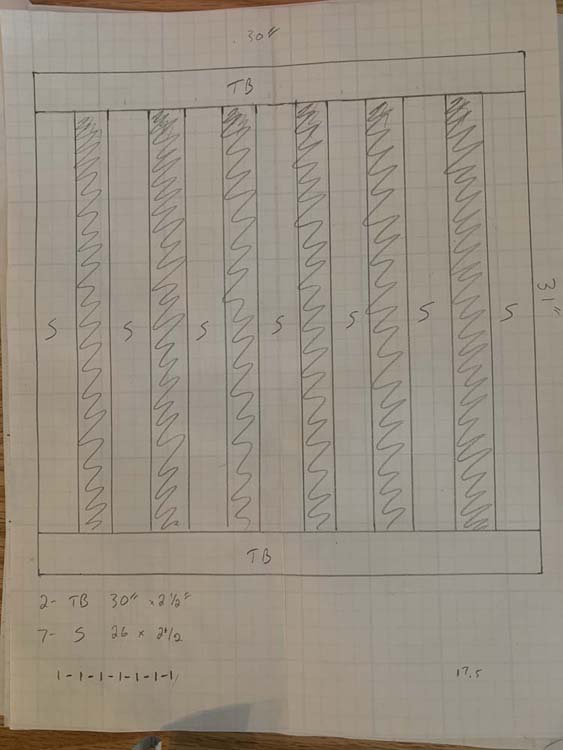 30"
TB
31"
S S S S S S S
TB
2- TB 30" x 2 1/2"
7- S 26 x 2 1/2
1-1-1-1-1-1-1
17.5